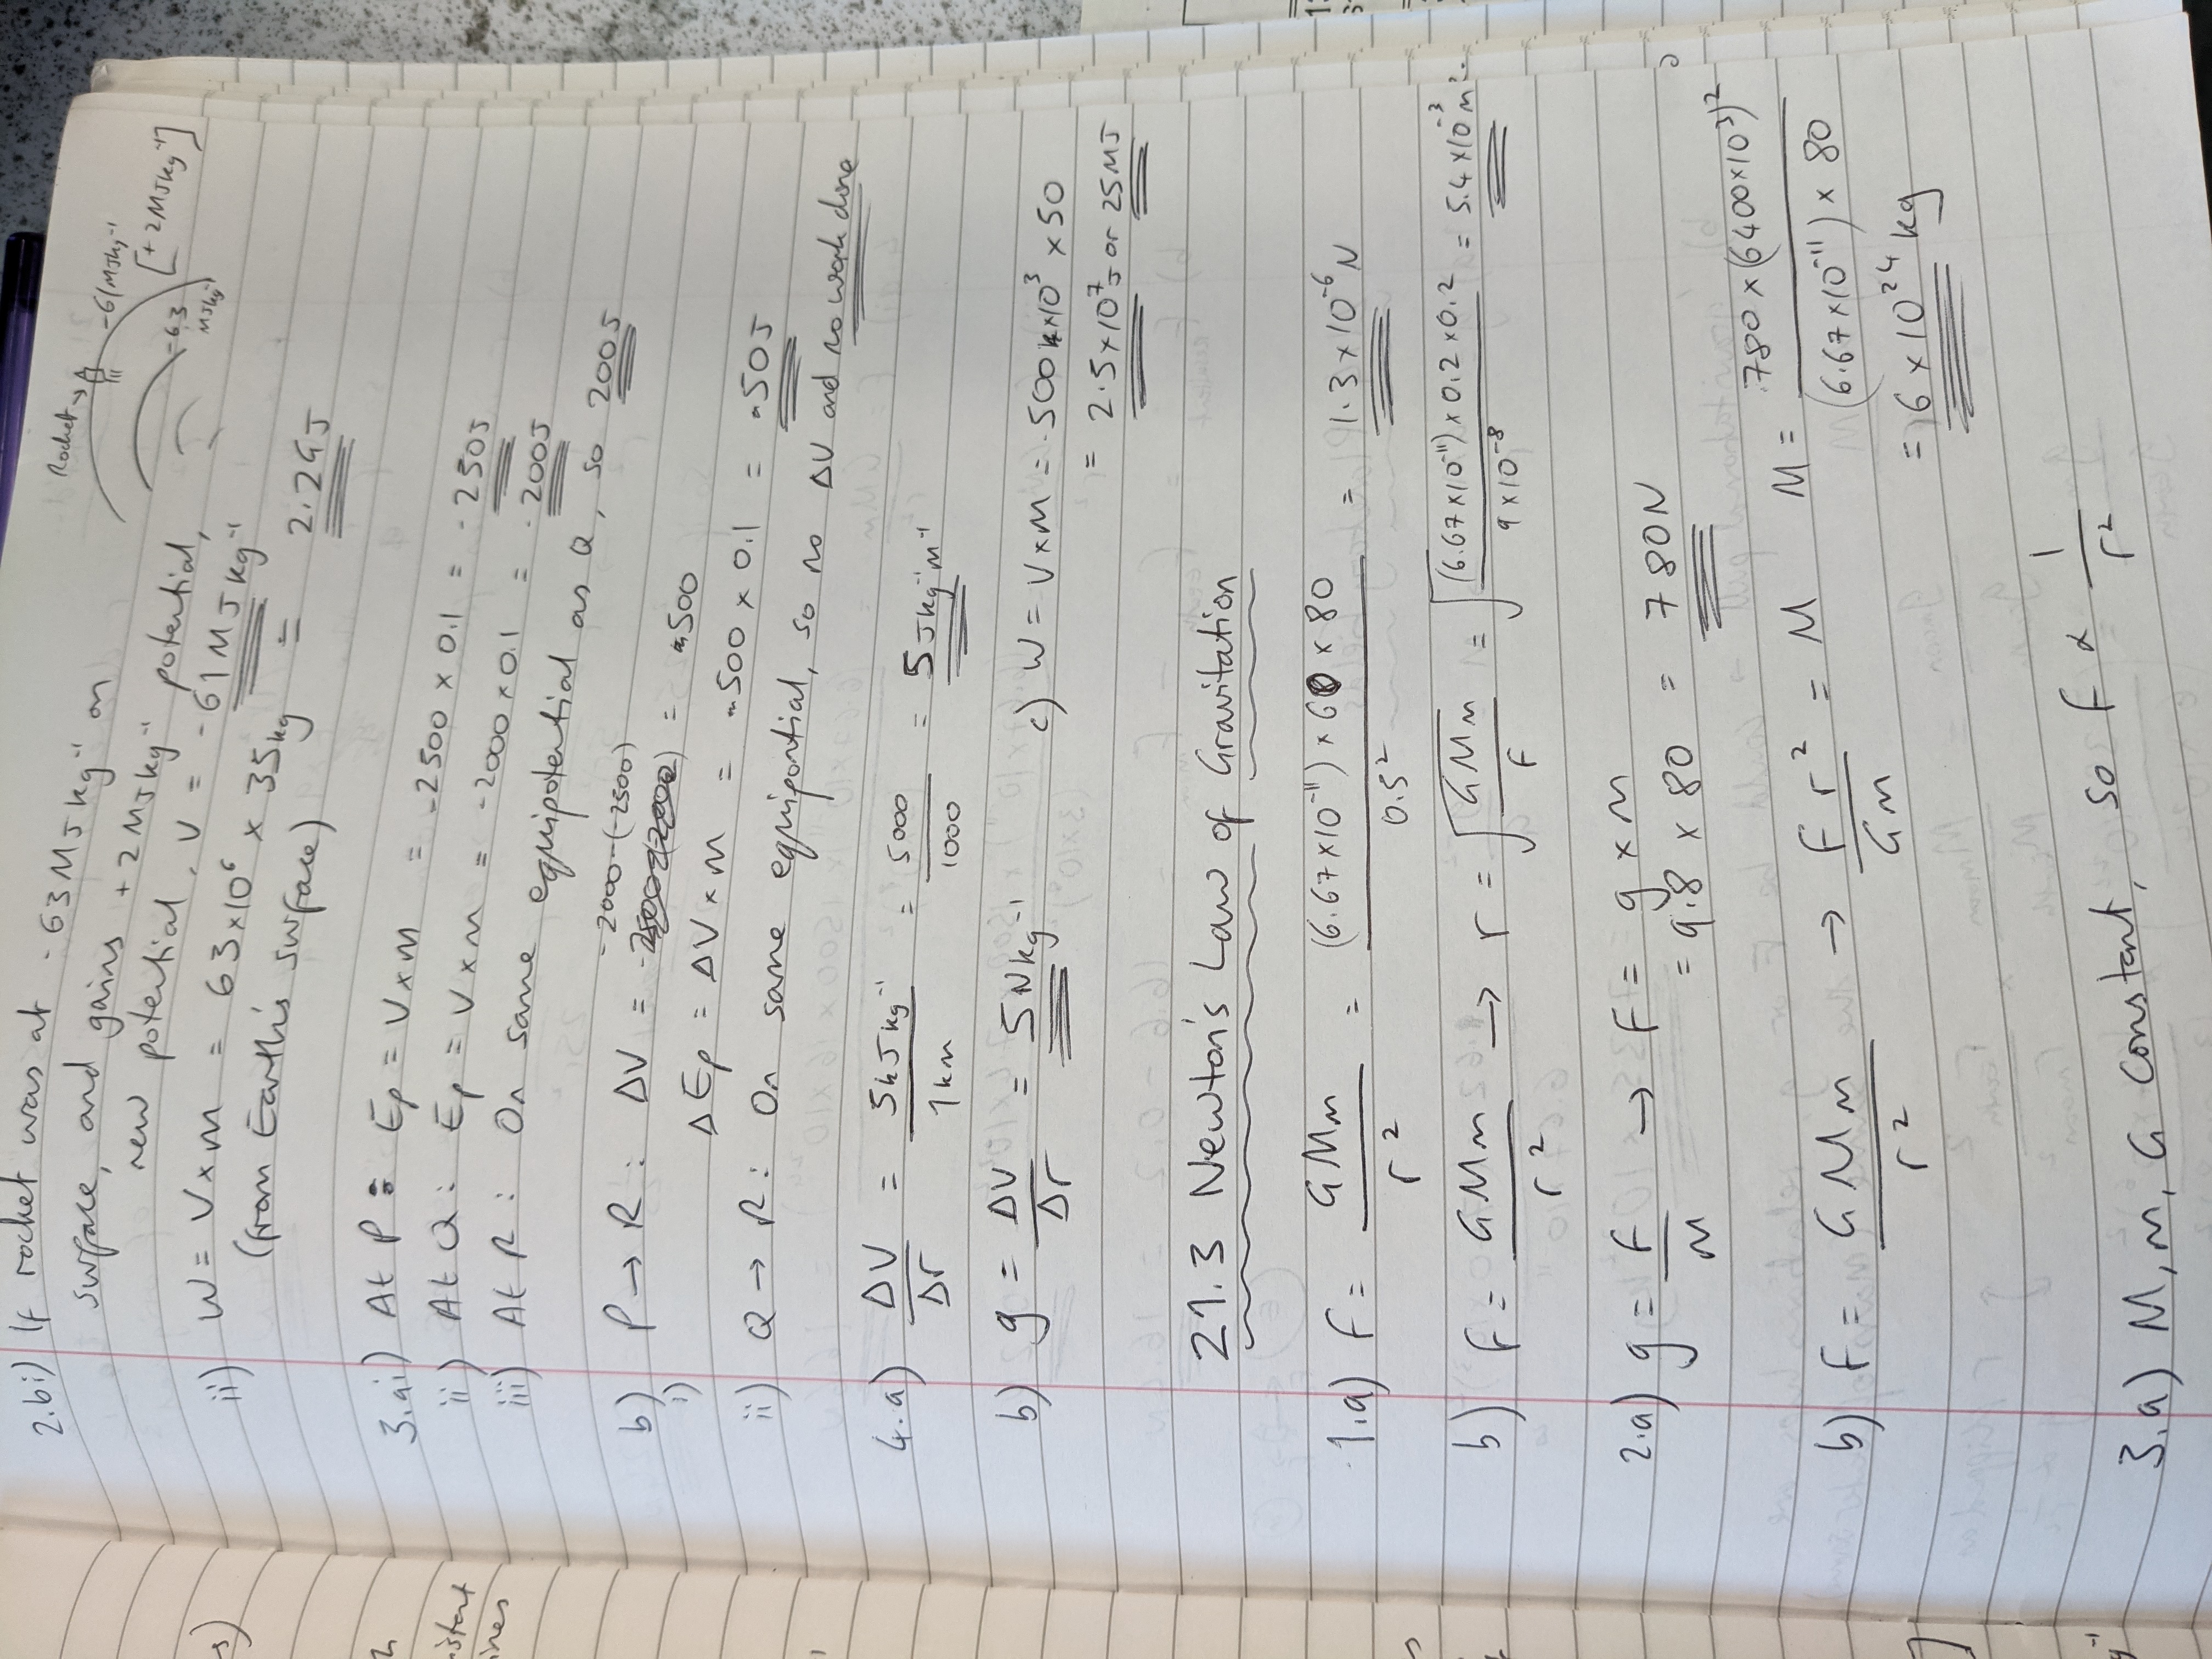 2.bi) If rocket was at -63MJkg⁻¹ on
surface, and gains +2MJkg⁻¹ potential,
new potential, V = -61MJkg⁻¹
Rocket →
-61MJkg⁻¹
-63 MJkg⁻¹
[+2MJkg⁻¹]
ii) W = V×m = 63×10⁶ × 35kg = 2.2GJ
(from Earth's surface)
3.ai) At P: Ep = V×m = -2500 × 0.1 = -250J
ii) At Q: Ep = V×m = -2000 × 0.1 = -200J
iii) At R: On same equipotential as Q, so 200J
b) P → R: ΔV = -2000-(-2500) = 500
i) ΔEp = ΔV×m = 500 × 0.1 = 50J
ii) Q → R: On same equipontial, so no ΔV and no work done
4.a) ΔV/Δr = 5kJkg⁻¹/1km = 5000/1000 = 5Jkg⁻¹m⁻¹
b) g = ΔV/Δr = 5Nkg⁻¹
c) W = V×M = 500×10³ × 50
= 2.5×10⁷J or 25MJ
21.3 Newton's Law of Gravitation
1.a) F = GMm/r² = (6.67×10⁻¹¹)×60×80/0.5² = 1.3×10⁻⁶N
b) F = GMm/r² → r = √GMm/F = √(6.67×10⁻¹¹)×0.2×0.2/9×10⁻⁸ = 5.4×10⁻³m
2.a) g = F/m → F = g×m
= 9.8 × 80 = 780N
b) F = GMm/r² → Fr²/Gm = M M = 780×(6400×10³)²/(6.67×10⁻¹¹)×80
= 6×10²⁴kg
3.a) M, m, G constant, so F ∝ 1/r²